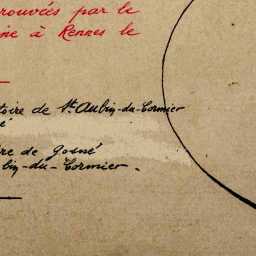 rouvées par le
ne à Rennes le
toire de St Aubin-du-Cormier
é
re de Gosné
bin-du-Cormier.